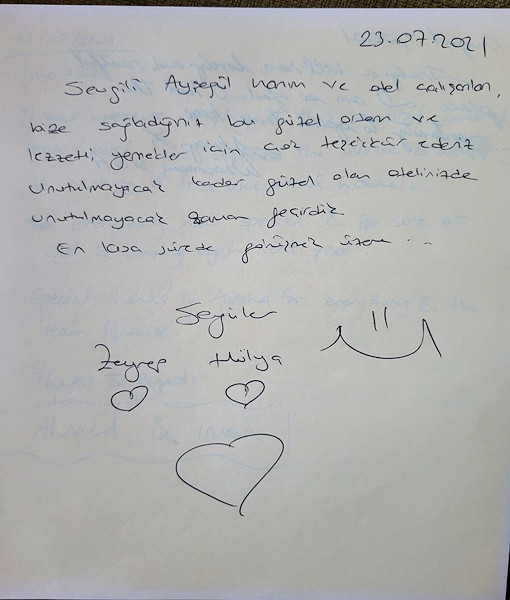 23.07.2021
Sevgili Ayşegül hanım ve otel çalışanları,
bize sağladığınız bu güzel ortam ve
lezzetli yemekler için çok teşekkür ederiz
Unutulmayacak kadar güzel olan otelinizde
unutulmayacak zaman geçirdik
En kısa sürede görüşmek üzere ...
Sevgiler
Zeynep Hülya